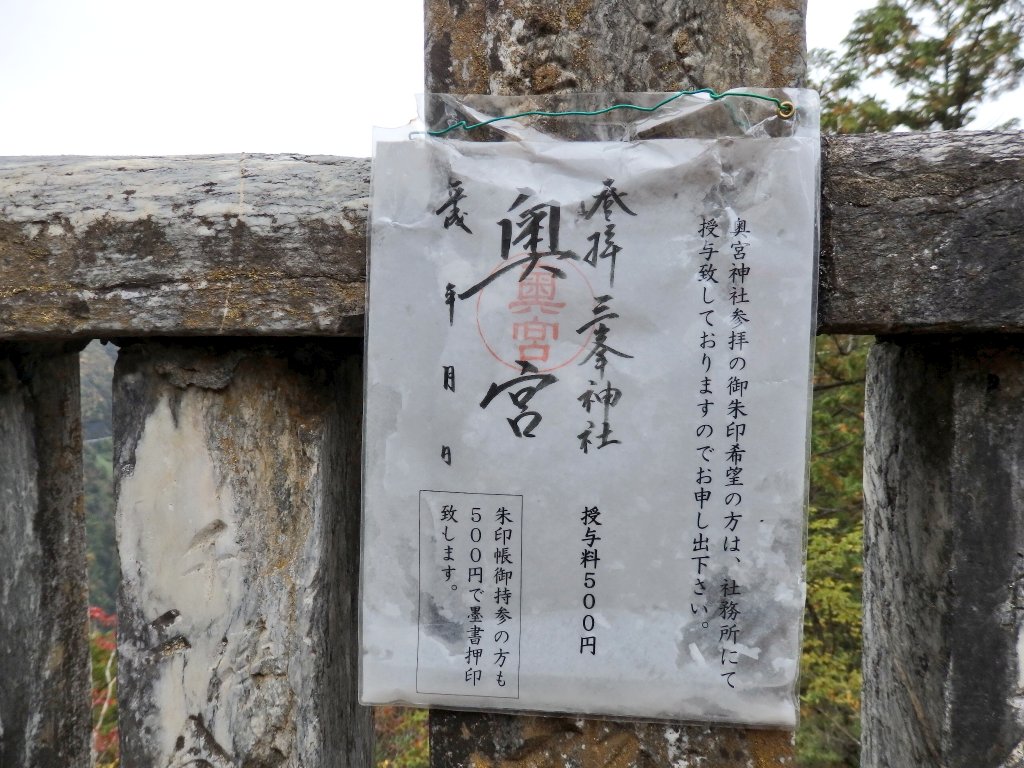 奥宮神社参拝の御朱印希望の方は、社務所にて
授与致しておりますのでお申し出下さい。
登拝 三峯神社
授与料500円
奥宮
奥宮
年 月 日
朱印帳御持参の方も
500円で墨書押印
致します。